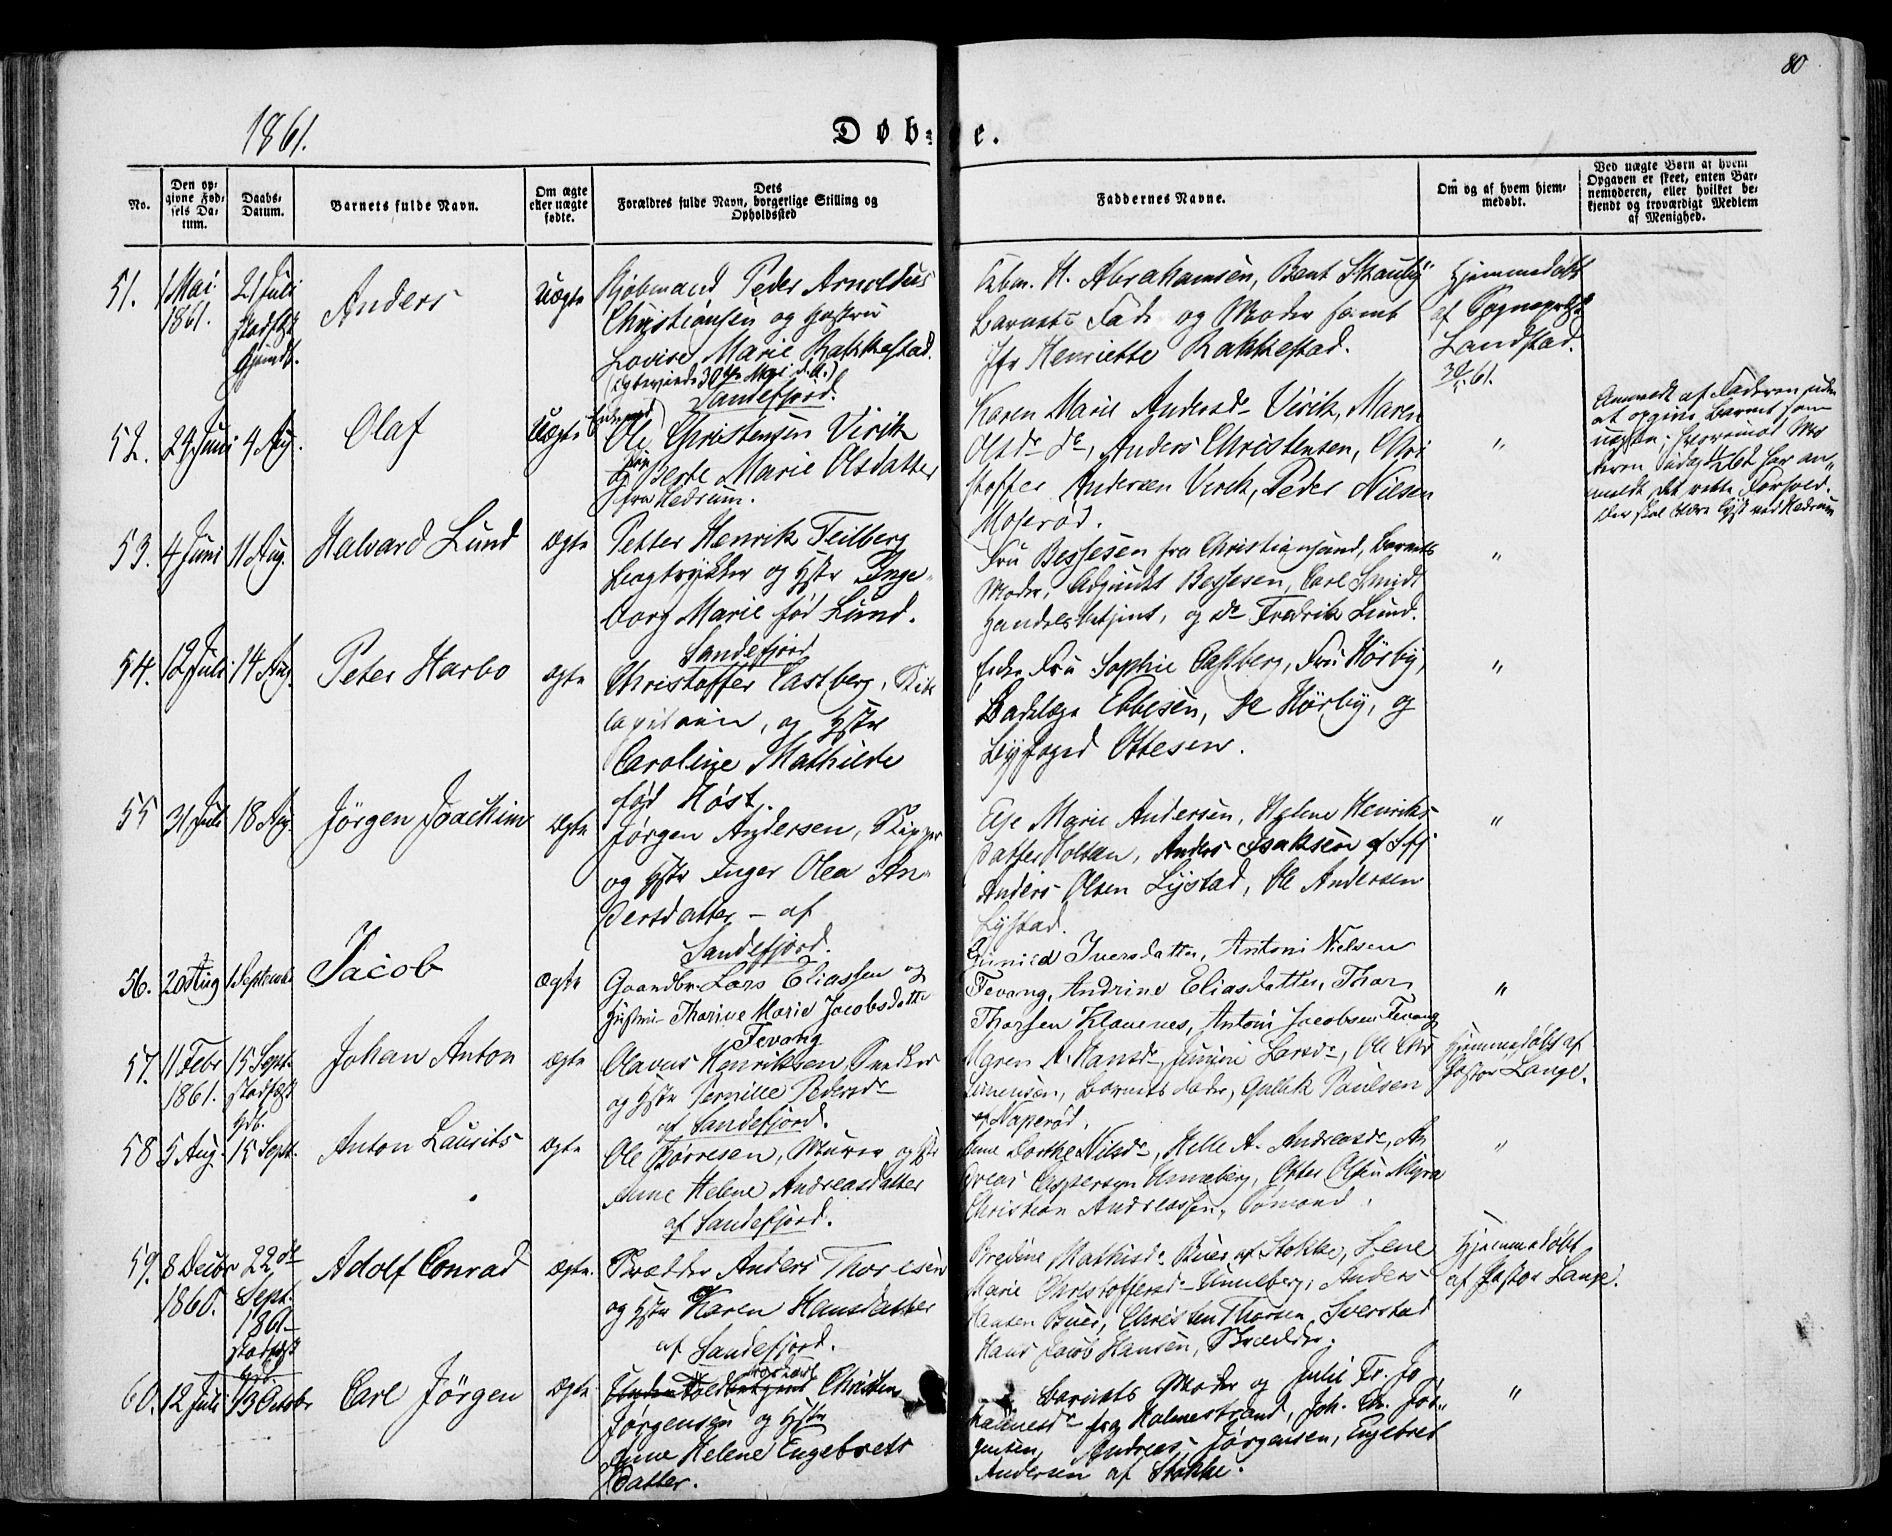 80
1861.
Døb- e.
No.
Den op-
givne Fød-
sels Da-
tum.
Daabs-
Datum.
Barnets fulde Navn.
Om ægte
eller uægte
fødte.
Dets
Forældres fulde Navn, borgerlige Stilling og
Opholdssted
Faddernes Navne.
Om og af hvem hjem-
medøbt.
Ved uægte Børn at hvem
Opgaven er skeet, enten Bar-
nemoderen, eller hvilket be-
kjendt og troværdigt Medlem
af Menighed.
51.
1 Mai
1861.
21 Juli
stadfæst
Anders
uægte
Kjøbmand Peder Arnoldus
Christiansen og Hustru
Lovise Marie Rakkestad.
Sandefjord.
H. Abrahamsen, Bent Skaulij
Barnets Fader og Moder samt
Jfr Henriette Rakkestad.
Hjemmedøbt
af Sognepræst
Landstad.
52.
29 Juni
4 Aug.
Olaf
Uægte
Ole Christensen Virik
og Pige Berte Marie Olsdatter
fra Hedrum.
Karen Marie Andersdr Virik, Maren
Olsdr do, Anders Christensen, Chri
stoffer Andersen Virik, Peder Nilsen
Moserød.
"
Anmeldt af Faderen uden
at opgive Barnet som
uægte; hvorimod Mo
deren har an-
meldt det rette Forhold.
53.
4 Juni
11 Aug.
Halvard Lund
ægte
Petter Henrik Feilberg
Bogtrykker og Hstr Inge-
borg Marie fød Lund.
Sandefjord
Fru Bessesen fra Christiansund, Barnets
Moder, Adjunkt Bessesen, Carl Smidt
Handelsbetjent, og do Fredrik Lund.
"
54.
12 Juli
14 Aug.
Peter Harbo
ægte
Christoffer Castberg,
og Hstr
Caroline Mathilde
fød Høst.
Fru Sophie Castberg, Fru Hørby,
Badelæge Ebbesen, Hørby, og
Byfoged Ottesen.
"
55
31 Juli
18 Aug
Jörgen Joackim
ægte
Jørgen Andersen, Skipper
og Hstr Inger Olea An-
dersdatter - af
Sandefjord.
Else Marie Andersen, Helene Henriks
datter Holtan, Anders Isaksen af Sfj
Anders Olsen Lystad, Ole Andersen
Lystad.
"
56.
20 Aug
1 September
Jacob
ægte
Gaardbr Lars Eliassen og
Hustru Thorine Marie Jacobsdatter
Fevang
Gunild Iversdatter, Antoni Nielsen
Fevang, Andrine Eliasdatter, Thor
Thorsen Klavenes, Antoni Jacobsen Fevang
"
57.
11 Febr
1861.
15 Sept.
stadfæst
Johan Anton
ægte
Olavus Henriksen, Snedker
og Hstr Pernille Pedersdr
af Sandefjord.
Maren A. Hansdr, Larsdr, Ole Chr
Simensen, Barnets Fader, Gullik Paulsen
af Naperød.
Hjemmedøbt af
Pastor Lange.
58
5 Aug.
15 Sept.
Anton Laurits
ægte
Ole Torresen, Murer og Hstr
Anne Helene Andreasdatter
af Sandefjord.
Anne Dorthe Nilsdr, Helle A. Andreasdr, An
dreas Caspersen Unneberg, Peter Olsen Myra
Christian Andreassen, Sømand.
"
59.
8 Decbr
1860.
22de
Sept.
1861
stadfæst
Adolf Conrad
ægte.
Skrædder Anders Thoresen
og Hstr Karen Hansdatter
af Sandefjord.
Bredine Mathisdr Buer af Stokke, Lene
Marie Christoffersdr Unneberg, Anders
Hansen Buer, Christen Thorsen Sverstad
Hans Jacob Hansen, Skrædder.
Hjemmedøbt
af Pastor Lange.
60.
12 Juli
13 Octobr
Carl Jörgen
ægte
Christen
Jørgensen og Hstr
Anne Helene Engebrets
datter.
Barnets Moder og Julie Fr. Jo
hannesdr fra Holmestrand, Joh. Chr. Jør-
gensen, Andreas Jørgensen, Engebret
Andersen af Stokke.
"